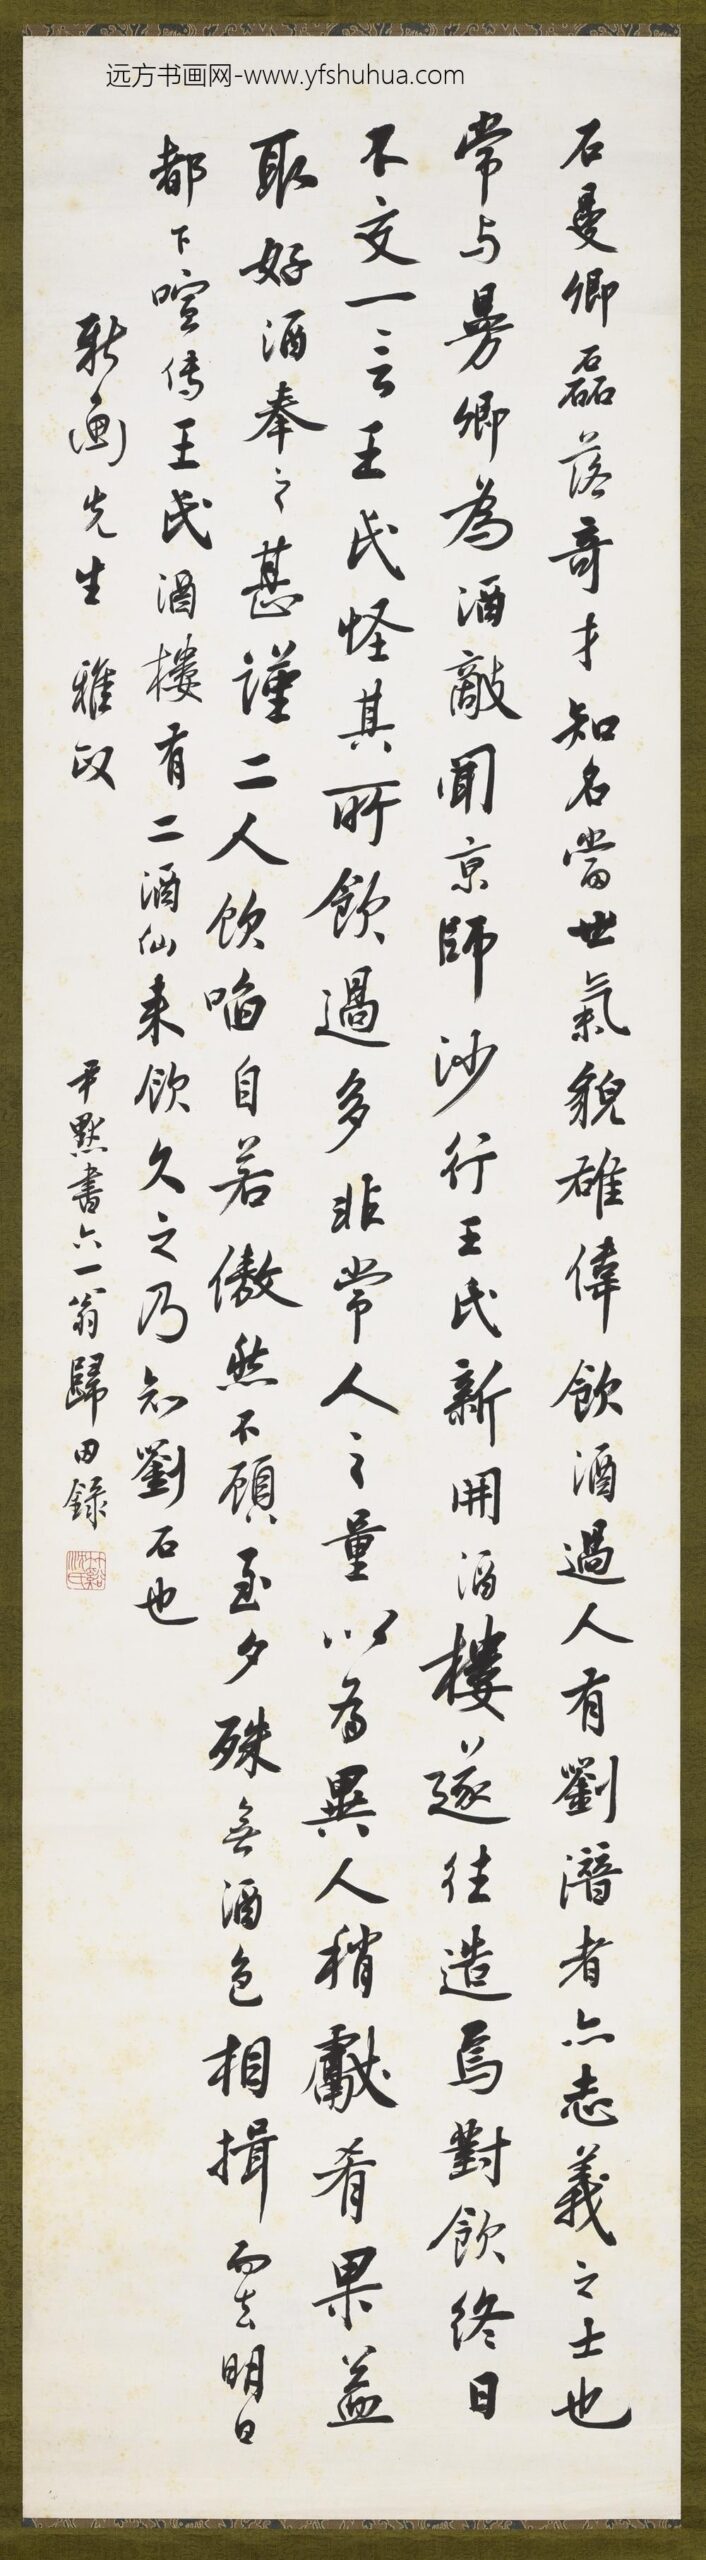 远方书画网-www.yfshuhua.com
石曼卿磊落奇才知名當世氣貌雄偉飲酒過人有劉潛者亦志義之士也
常与曼卿為酒敵聞京師沙行王氏新開酒樓遂往造焉對飲終日
不交一言王氏怪其所飲過多非常人之量以為異人稍獻肴果益
取好酒奉之甚謹二人飲啗自若傲然不顧至夕殊無酒色相揖而去明日
都下喧傳王氏酒樓有二酒仙来飲久之乃知劉石也
先生 雅政
尹默書六一翁歸田錄